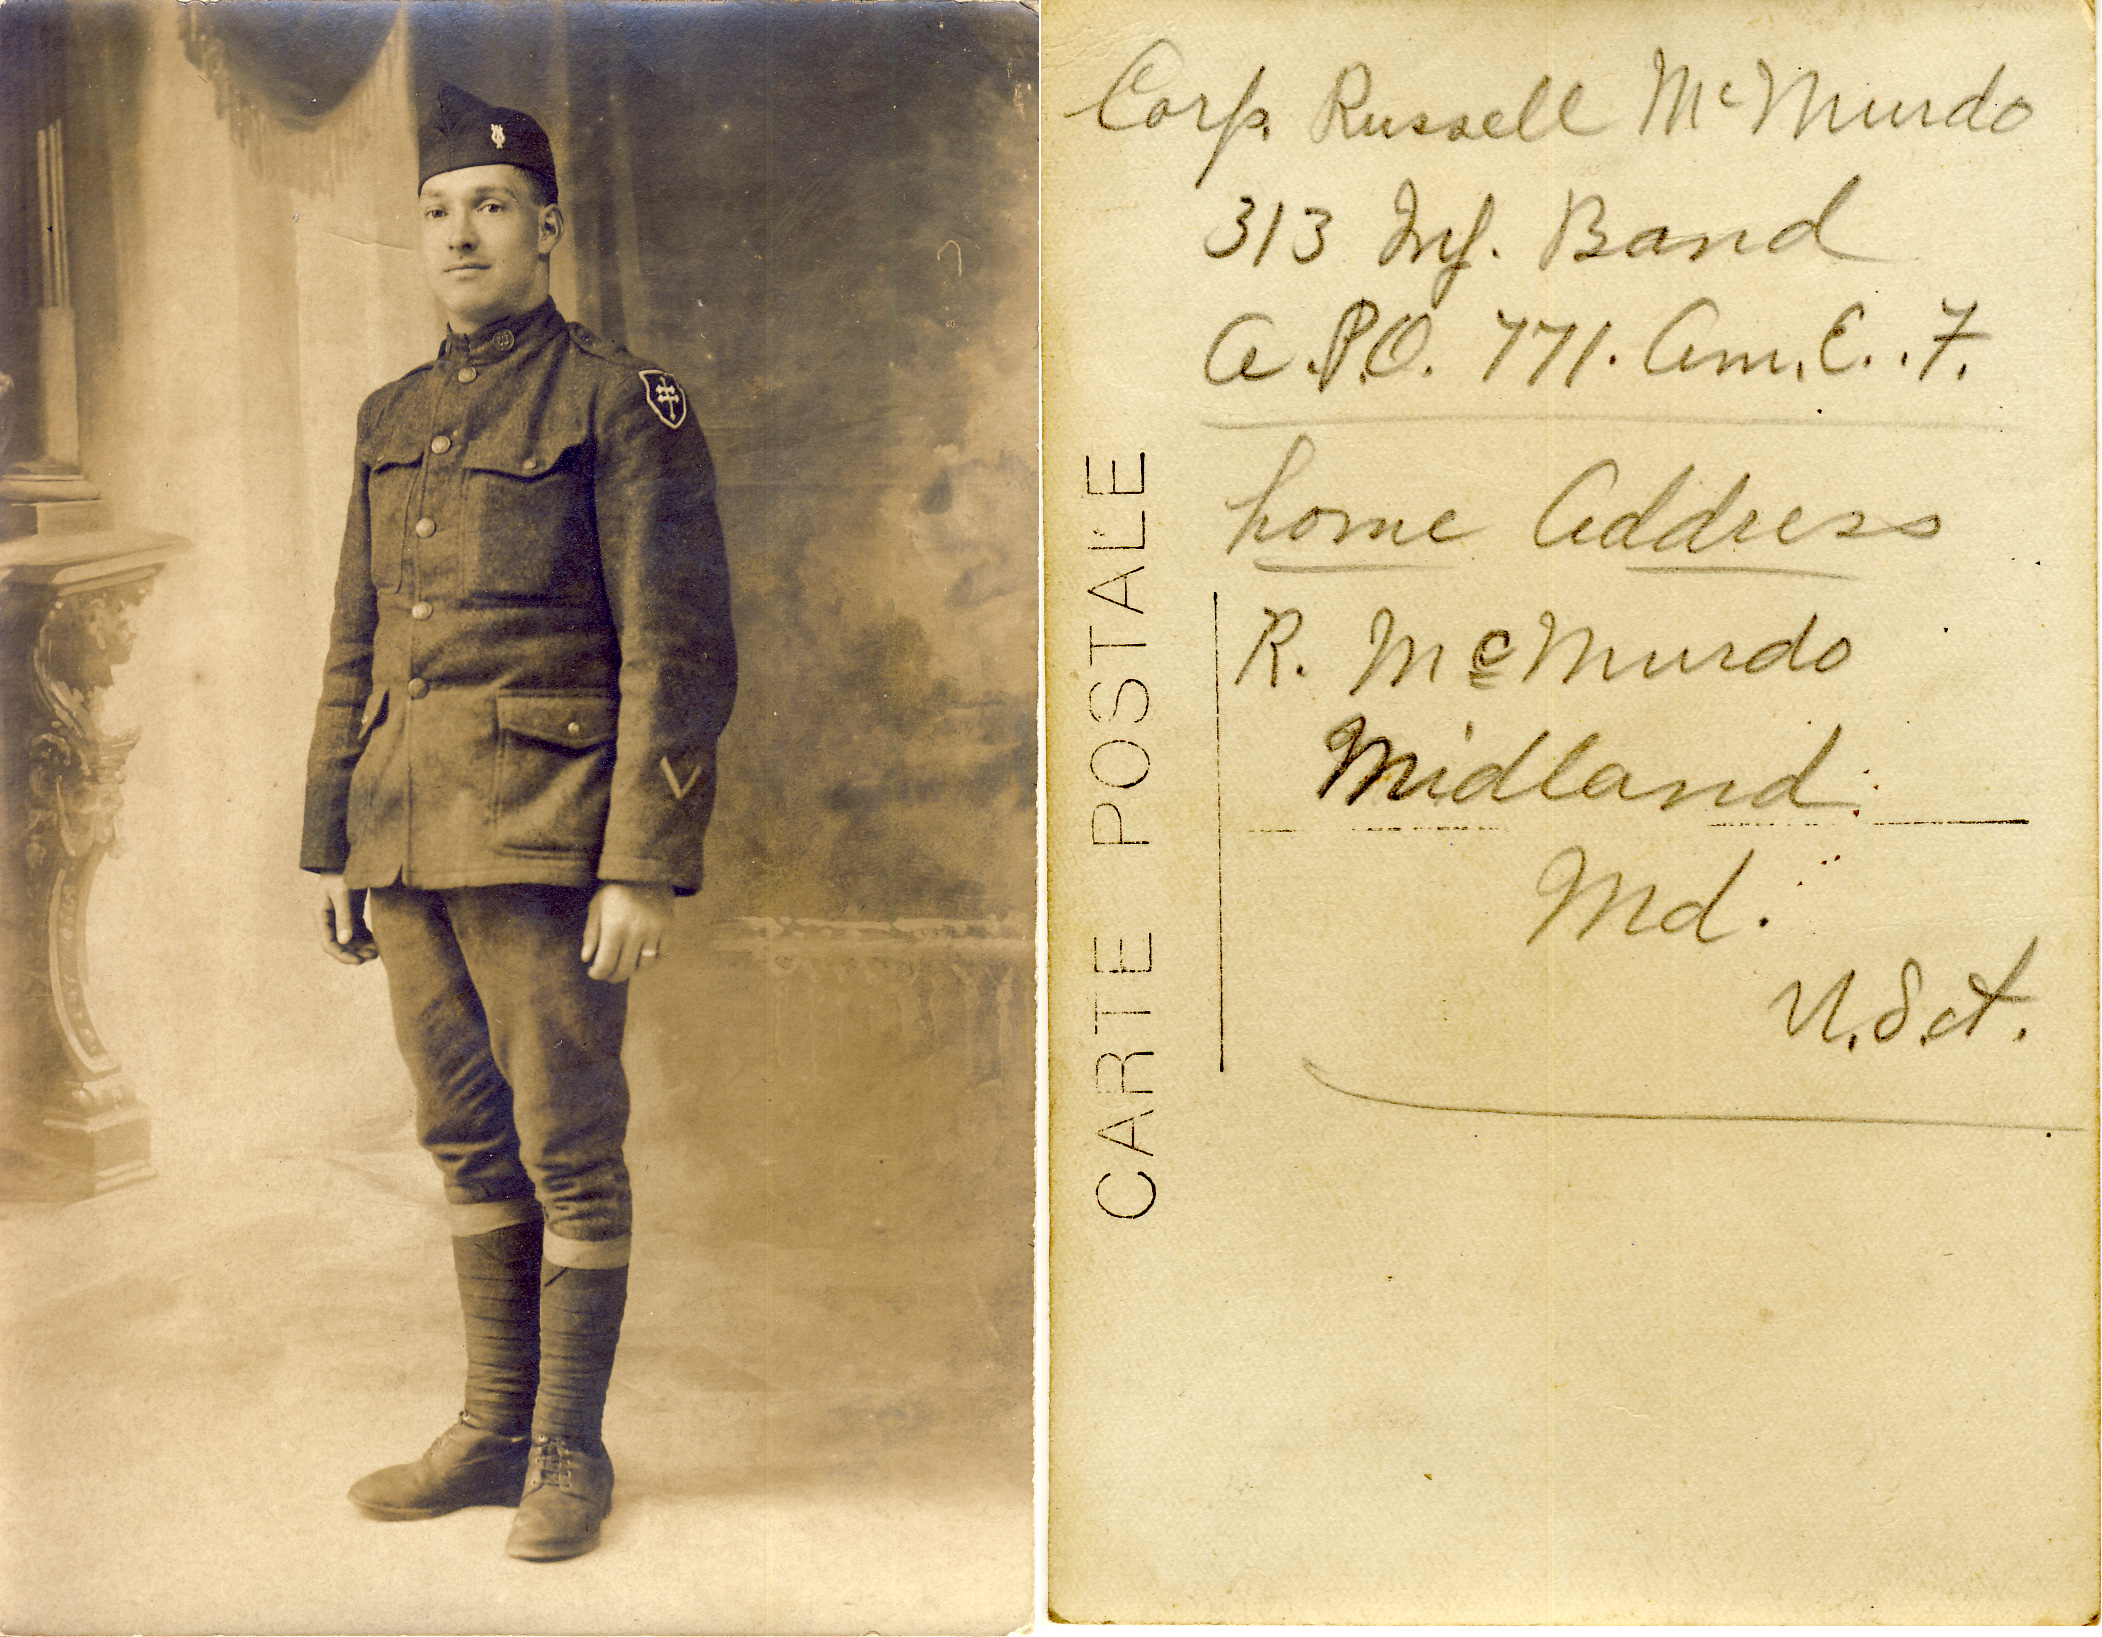 Corp. Russell McMurdo
313 Inf. Band
A.P.O. 771. Am. E..F.
home Address
R. McMurdo
Midland
Md.
U.S.A.
CARTE POSTALE